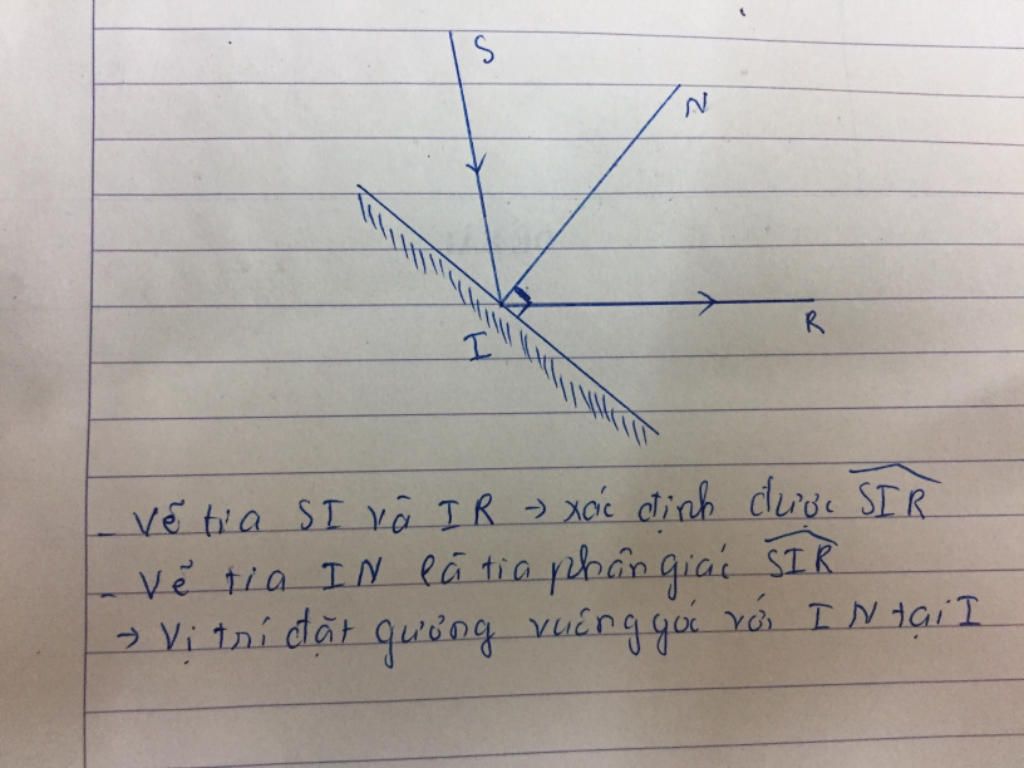 S
N
I
R
- Vẽ tia SI và IR → xác định được SIR
- Vẽ tia IN là tia phân giác SIR
→ Vị trí đặt gương vuông góc với IN tại I